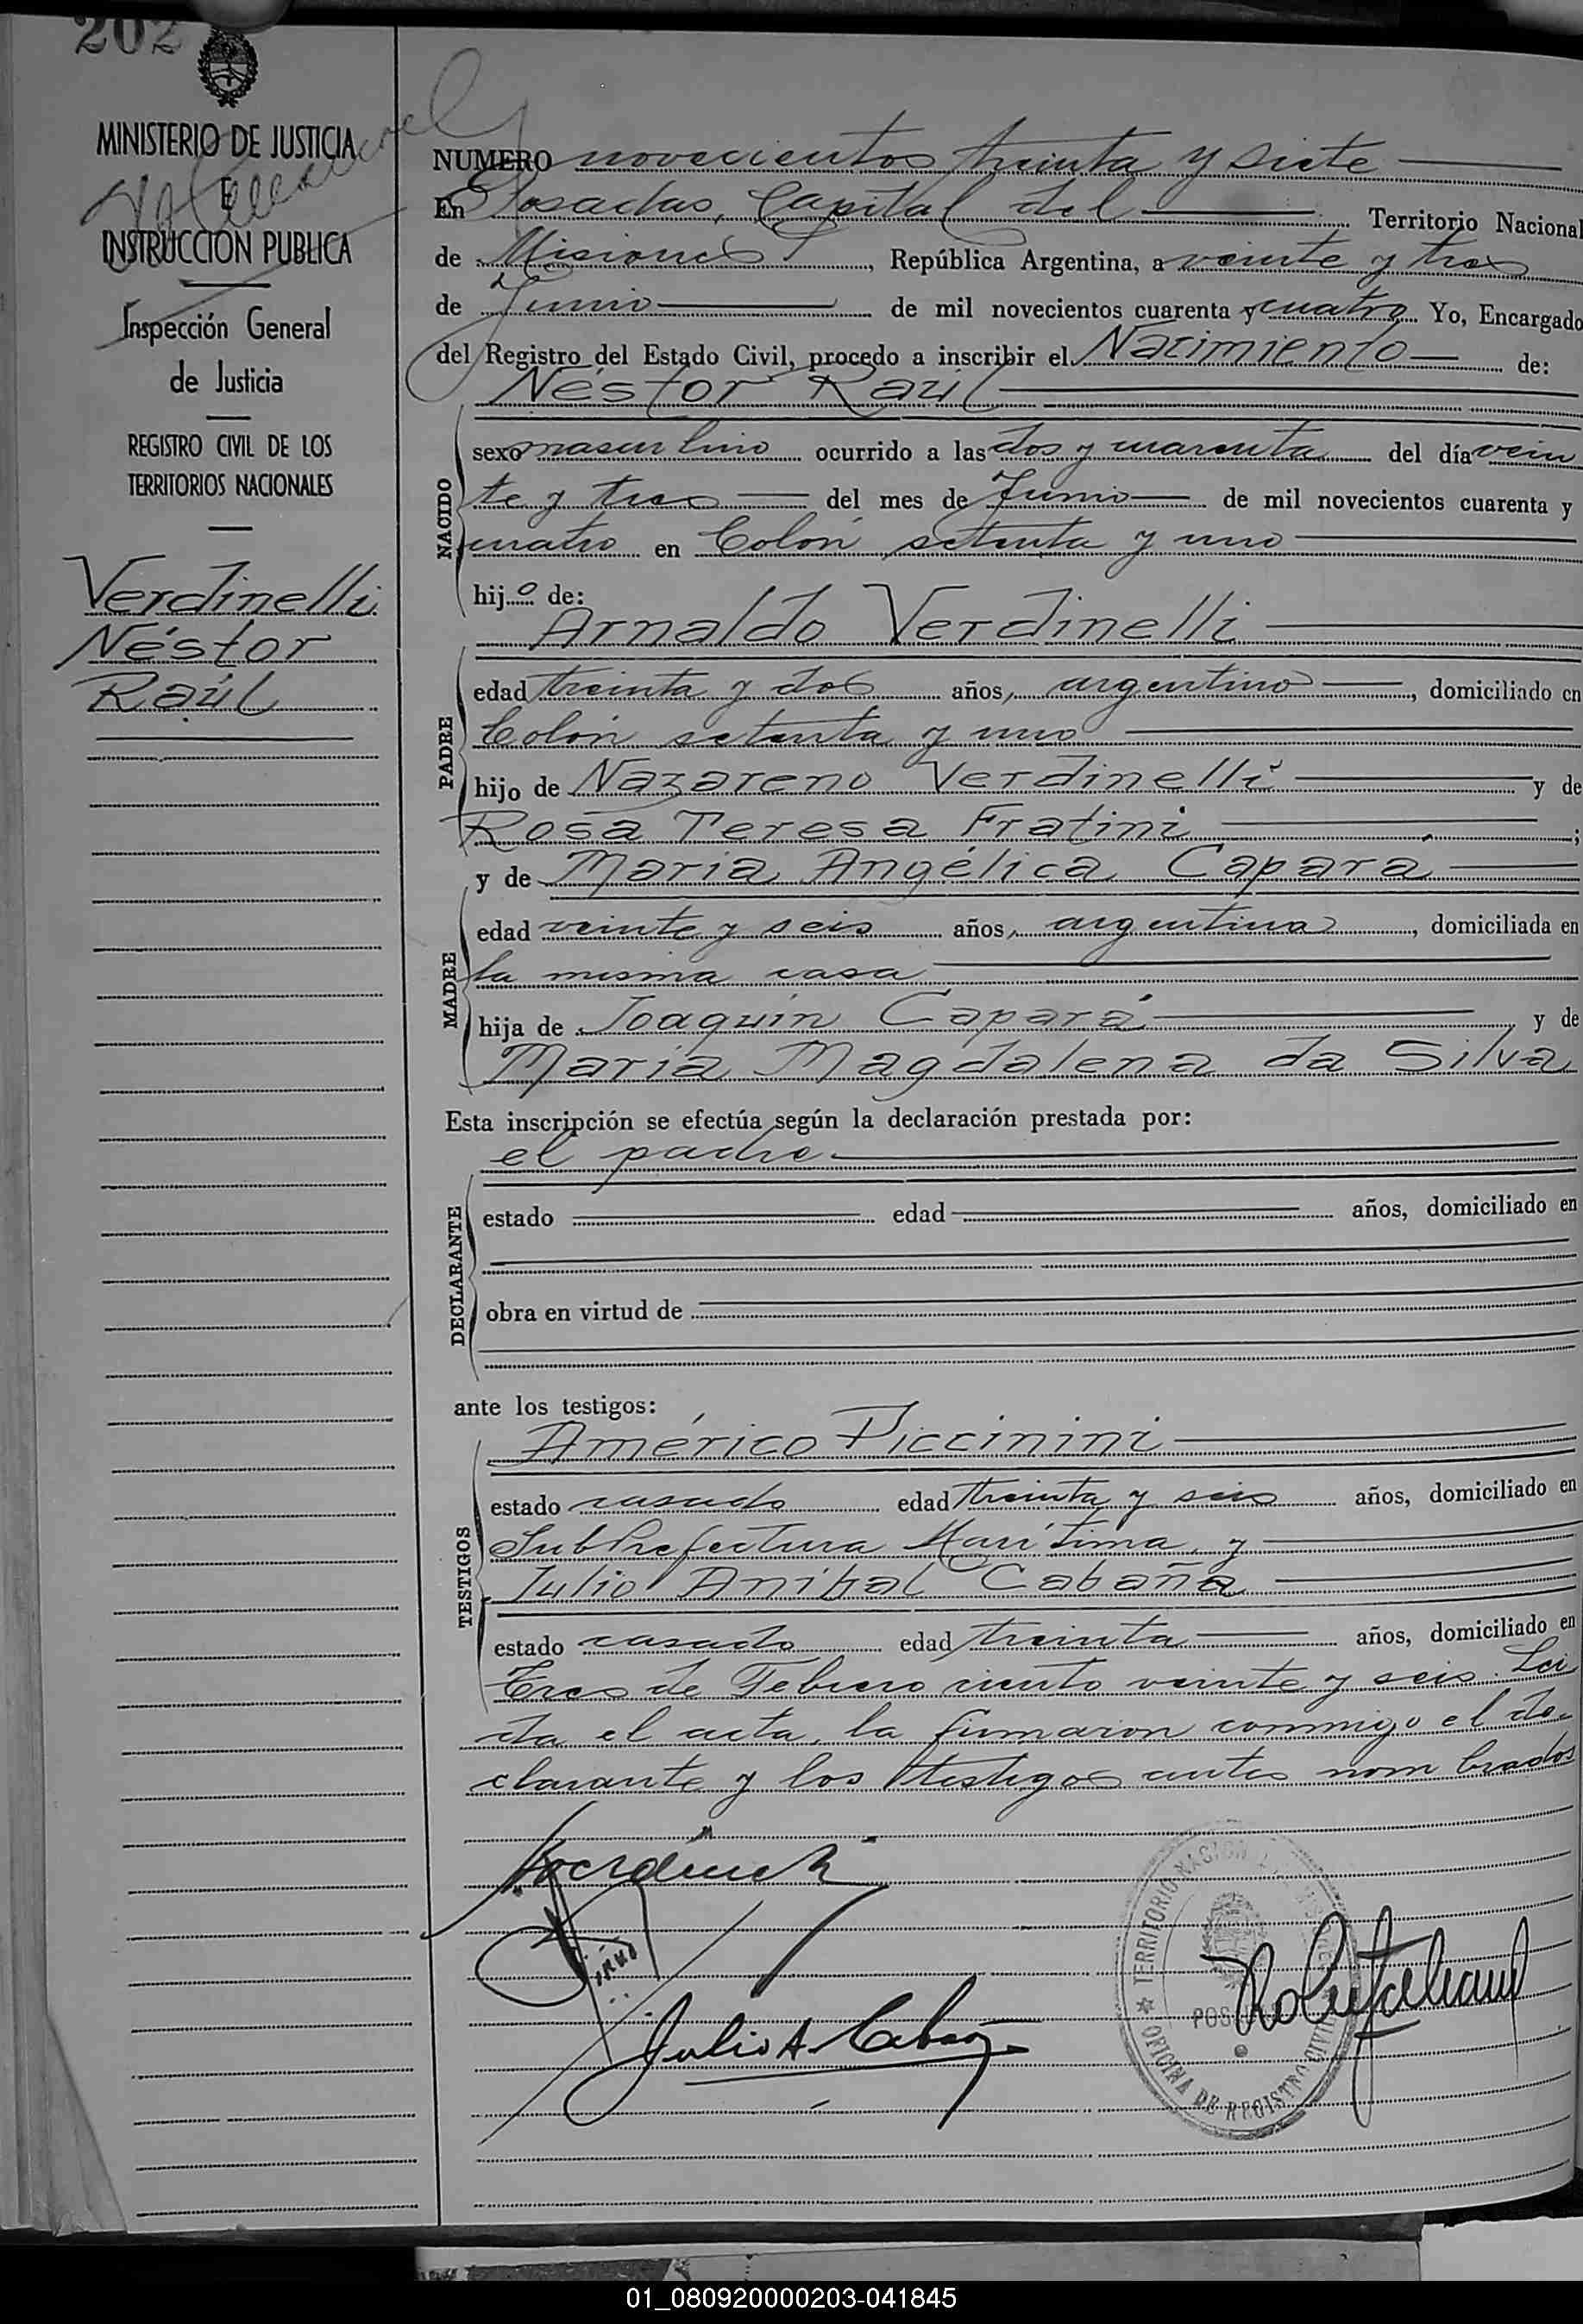 202
MINISTERIO DE JUSTICIA
E
INSTRUCCION PUBLICA
Inspección General
de Justicia
REGISTRO CIVIL DE LOS
TERRITORIOS NACIONALES
Verdinelli
Néstor
Raúl
NUMERO novecientos treinta y siete
En Posadas, Capital del Territorio Nacional
de Misiones, República Argentina, a veinte y tres
de Junio de mil novecientos cuarenta y cuatro Yo, Encargado
del Registro del Estado Civil, procedo a inscribir el Nacimiento de:
Néstor Raúl
NACIDO
sexo masculino ocurrido a las dos y cuarenta del día vein
te y tres del mes de Junio de mil novecientos cuarenta y
cuatro en Colón setenta y uno
hijo de:
Arnaldo Verdinelli
PADRE
edad treinta y dos años, argentino, domiciliado en
Colón setenta y uno
hijo de Nazareno Verdinelli y de
Rosa Teresa Fratini;
y de María Angélica Capará
MADRE
edad veinte y seis años, argentina, domiciliada en
la misma casa
hija de Joaquín Capará y de
María Magdalena da Silva
Esta inscripción se efectúa según la declaración prestada por:
el padre
DECLARANTE
estado edad años, domiciliado en
obra en virtud de
ante los testigos:
Américo Piccinini
TESTIGOS
estado casado edad treinta y seis años, domiciliado en
SubPrefectura Marítima, y
Julio Aníbal Cabaña
estado casado edad treinta años, domiciliado en
Tres de Febrero ciento veinte y seis. Leí
da el acta, la firmaron conmigo el de-
clarante y los testigos antes nombrados
Julio A. Cabaña
TERRITORIO NACIONAL
POSADAS
OFICINA DE REGISTRO CIVIL
01_080920000203-041845